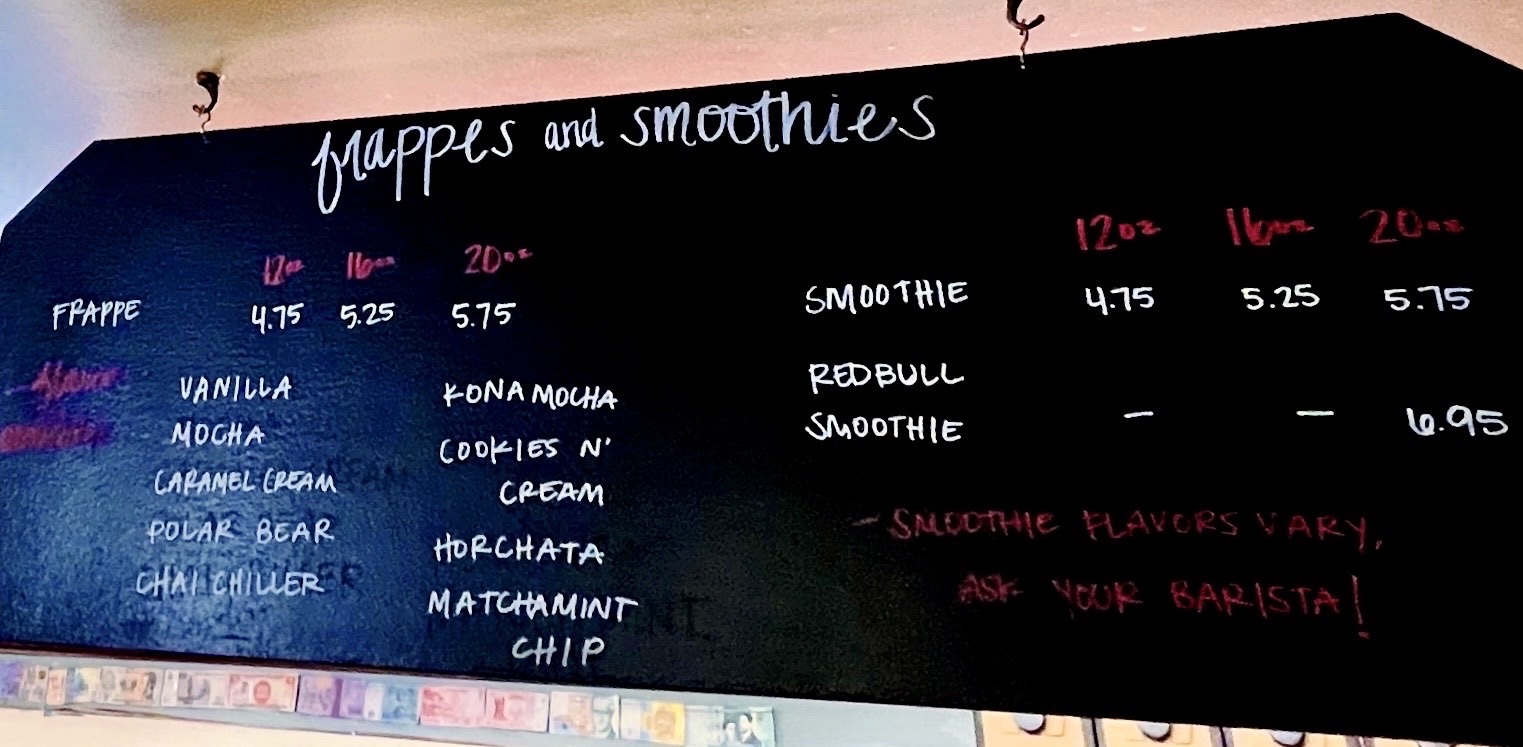 frappes and smoothies
12oz 16oz 20oz
FRAPPE 4.75 5.25 5.75
VANILLA
MOCHA
CARAMEL CREAM
POLAR BEAR
CHAI CHILLER
KONA MOCHA
COOKIES N'
CREAM
HORCHATA
MATCHAMINT
CHIP
12oz 16oz 20oz
SMOOTHIE 4.75 5.25 5.75
REDBULL
SMOOTHIE — — 6.95
- SMOOTHIE FLAVORS VARY,
ASK YOUR BARISTA!